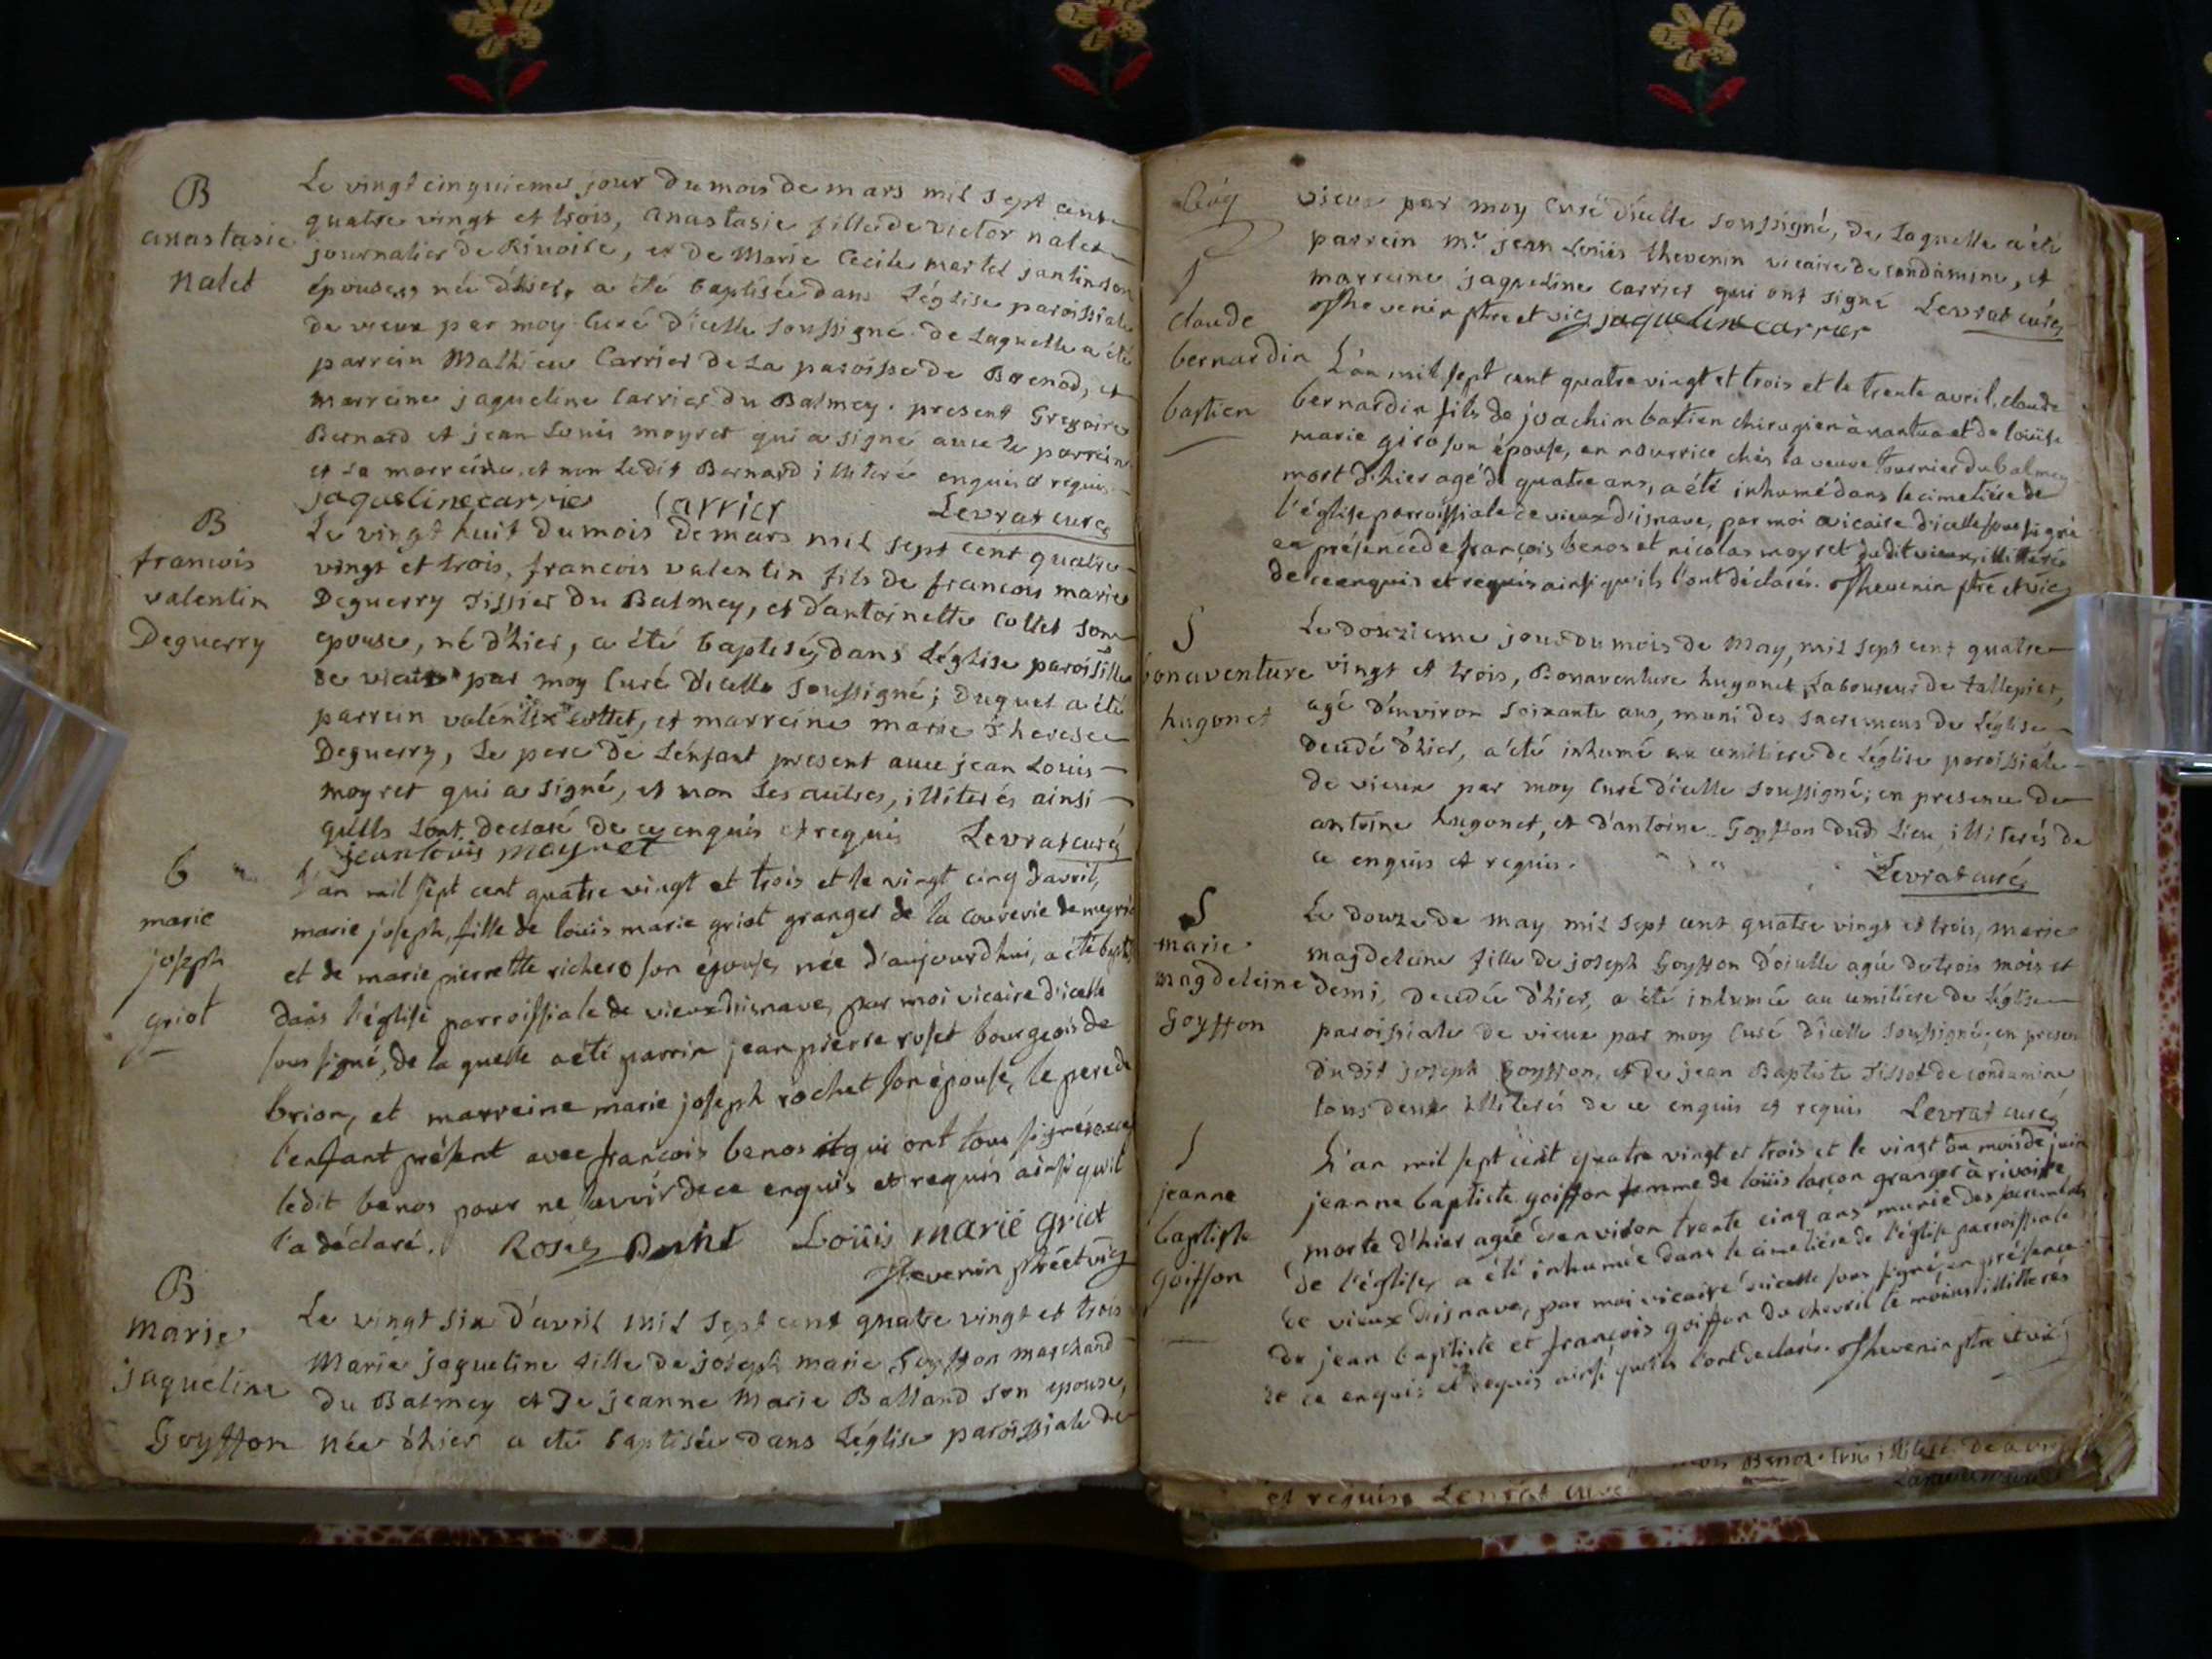 B
anastasie
nalet
Le vingt cinquieme jour du mois de mars mil sept cent
quatre vingt et trois, anastasie fille de victor nalet
journalier de Rivoire, et de Marie Cecile martel jantin son
épouse, née d'hier, a été baptisée dans Léglise paroissiale
de vieux par moy Curé d'icelle soussigné. de Laquelle a été
parrein Mathieu Carrier de La paroisse de Brenod, et
marreine jaqueline Carrier du Balmey. present Gregoire
Bernard et jean Louis moyret qui a signé avec le parrein
et la marreine, et non Ledit Bernard illiteré enquis et requis
jaqueline carrier Carrier Levrat curé
B
francois
valentin
Deguerry
Le vingt huit du mois de mars mil sept cent quatre
vingt et trois, francois valentin fils de francois marie
Deguerry Tissier du Balmey, et d'antoinette Collet son
epouse, né d'hier, a été baptisé, dans Léglise paroissille
de vieux par moy Curé d'icelle soussigné; duquel a été
parrein valentin collet, et marreine marie Therese
Deguerry, Le pere de Lenfant present avec jean Louis
moyret qui a signé, et non Les autres, illiterés ainsi
qu'ils L'ont declaré de ce enquis et requis Levrat curé
jean louis moyret
b
marie
joseph
griot
L'an mil sept cent quatre vingt et trois et le vingt cinq d'avril,
marie joseph, fille de louis marie griot granger de la couverie de meyria
et de marie pierrette richero son épouse, née d'aujourdhui, a été bapt
dans l'église parroissiale de vieux disnave, par moi vicaire d'icelle
sous signé, de la quelle a été parrin jean pierre roset bourgeois de
brion, et marreine marie joseph rochet son épouse, le pere de
l'enfant présent avec françois benos et qui ont tous signés excep
ledit benos pour ne savoir de ce enquis et requis ainsi qu'il
l'a déclaré. Roset Loüis marie griot
Thevenin ptre et vic
B
Marie
jaqueline
Goyffon
Le vingt six d'avril mil sept cent quatre vingt et trois
Marie jaqueline fille de joseph marie Goyffon marchand
du Balmey et de jeanne Marie Balland son epouse,
née d'hier a eté baptisée dans Léglise paroissiale de
vieux par moy Curé d'icelle soussigné, de Laquelle a été
parrein Mr. jean Louis thevenin vicaire de condamine, et
marreine jaqueline carrier qui ont signé Levrat curé
Thevenin ptre et vic jaqueline carrier
S
claude
bernardin
bastien
L'an mil sept cent quatre vingt et trois et le trente avril, claude
bernardin fils de joachim bastien chirugien à nantua et de loüise
marie giro son épouse, en nourrice chés la veuve tournier du balmey
mort d'hier agé de quatre ans, a été inhumé dans le cimetiére de
l'église parroissiale de vieux d'isnave, par moi vicaire d'icelle sous signé
en présence de françois benos et nicolas moyret dudit vieux, illitterés
de ce enquis et requis ainsi qu'ils l'ont déclaré. Thevenin ptre et vic
S
bonaventure
hugonet
Le douzieme jour du mois de May, mil sept cent quatre
vingt et trois, Bonaventure hugonet Laboureur de tallepiet,
agé d'environ soixante ans, muni des sacremens de Léglise
decedé d'hier, a été inhumé au cemitiere de Léglise paroissiale
de vieux par moy Curé d'icelle soussigné; en presence de
antoine hugonet, et d'antoine Goyffon dud Lieu, illiterés de
ce enquis et requis.
Levrat curé
S
marie
magdeleine
Goyffon
Le douze de may mil sept cent quatre vingt et trois, marie
magdeleine fille de joseph Goyffon d'oisselle agée de trois mois et
demi, decedée d'hier, a été inhumée au cemitiere de Léglise
paroissiale de vieux par moy Curé d'icelle soussigné; en presen
dudit joseph Goyffon, et de jean Baptiste Tissot de condamine
tous deux illiterés de ce enquis et requis Levrat curé
S
jeanne
baptiste
goiffon
L'an mil sept cent quatre vingt et trois et le vingt du mois de juin
jeanne baptiste goiffon femme de loüis lançon granger à rivoire
morte d'hier agée d'environ trente cinq ans munie des sacrements
de l'église, a été inhumée dans le cimetiére de l'église parroissiale
de vieux disnave, par moi vicaire d'icelle sous signé, en présence
de jean baptiste et françois goiffon du chevril le moins illitterés
de ce enquis et requis ainsi qu'ils l'ont declaré. Thevenin ptre et vic
Benos illiteré de ce
et requis Levrat curé